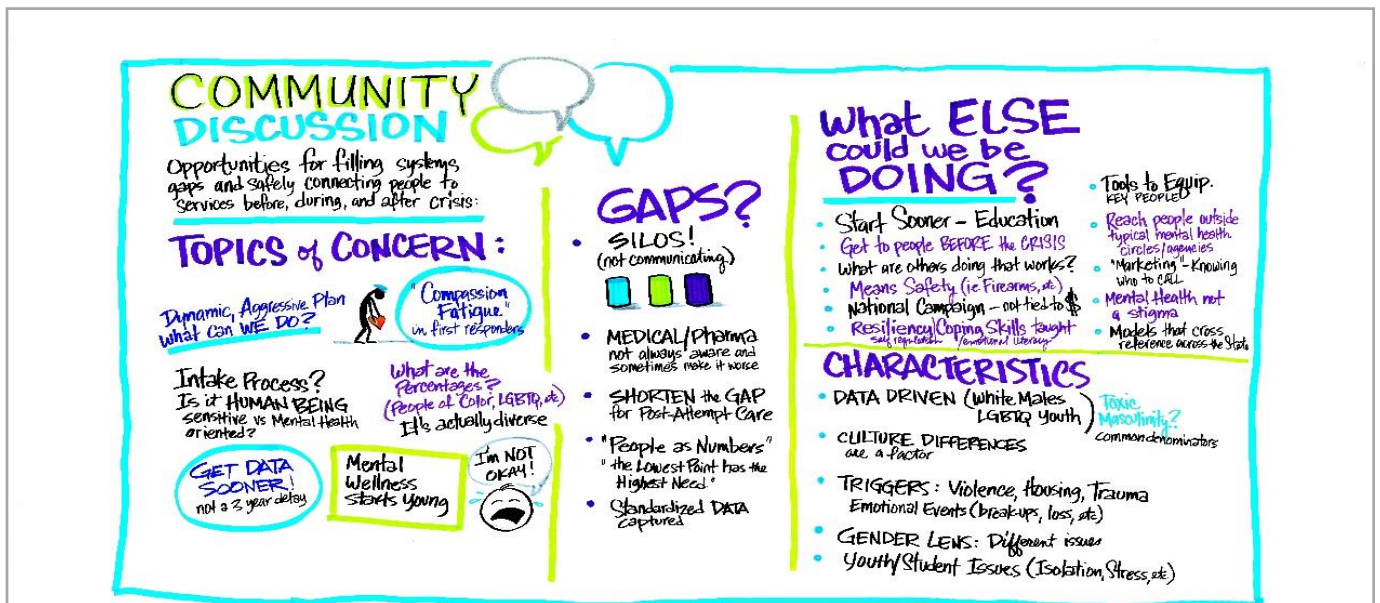 COMMUNITY
DISCUSSION
Opportunities for filling systems
gaps and safely connecting people to
services before, during, and after crisis:
TOPICS of CONCERN:
Dynamic, Aggressive Plan
What can WE DO?
"Compassion
Fatigue"
in first responders
Intake Process?
Is it HUMAN BEING
sensitive vs Mental Health
oriented?
What are the
Percentages?
(People of Color, LGBTQ, etc)
It's actually diverse
GET DATA
SOONER!
not a 3 year delay
Mental
Wellness
starts Young
I'm NOT
OKAY!
GAPS?
• SILOS!
(not communicating)
• MEDICAL/Pharma
not always aware and
sometimes make it worse
• SHORTEN the GAP
for Post-Attempt Care
• "People as Numbers"
"the Lowest Point has the
Highest Need."
• Standardized DATA
captured
What ELSE
could we be
DOING?
• Start Sooner - Education
• Get to people BEFORE the CRISIS
• What are others doing that works?
• Means Safety (ie Firearms, etc)
• National Campaign - not tied to $
• Resiliency/Coping Skills taught
self regulation /emotional literacy
• Tools to Equip.
KEY PEOPLE
• Reach people outside
typical mental health
circles/agencies
• "Marketing" - Knowing
who to CALL
• Mental Health not
a stigma
• Models that cross
reference across the State
CHARACTERISTICS
• DATA DRIVEN (White Males
LGBTQ Youth)
Toxic
Masculinity?
common denominators
• CULTURE DIFFERENCES
are a factor
• TRIGGERS: Violence, Housing, Trauma
Emotional Events (break-ups, loss, etc)
• GENDER LENS: Different issues
• Youth/Student Issues (Isolation, Stress, etc)